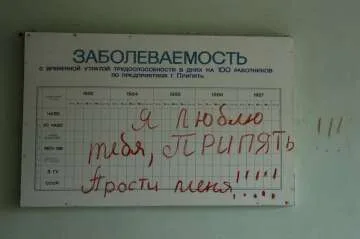 ЗАБОЛЕВАЕМОСТЬ
С ВРЕМЕННОЙ УТРАТОЙ ТРУДОСПОСОБНОСТИ В ДНЯХ НА 100 РАБОТНИКОВ
ПО ПРЕДПРИЯТИЯМ Г. ПРИПЯТЬ
1983 1984 1985 1986 1987
Я люблю
тебя, ПРИПЯТЬ !!!
Прости меня!!!!!
СССР